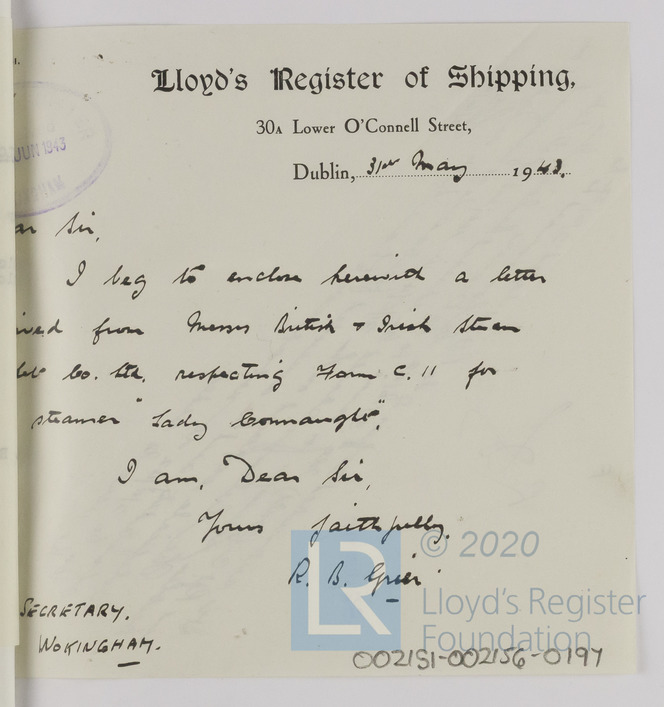 Lloyd's Register of Shipping,
30A Lower O'Connell Street,
Dublin, 31st May 1943.
JUN 1943
ar Sir,
I beg to enclose herewith a letter
ived from Messrs British & Irish Steam
ket Co. Ltd. respecting Form C. 11 for
steamer "Lady Connaught".
I am, Dear Sir,
Yours faithfully,
R. B. Grier
SECRETARY.
WOKINGHAM.
LR
© 2020
Lloyd's Register
Foundation
002151-002156-0197